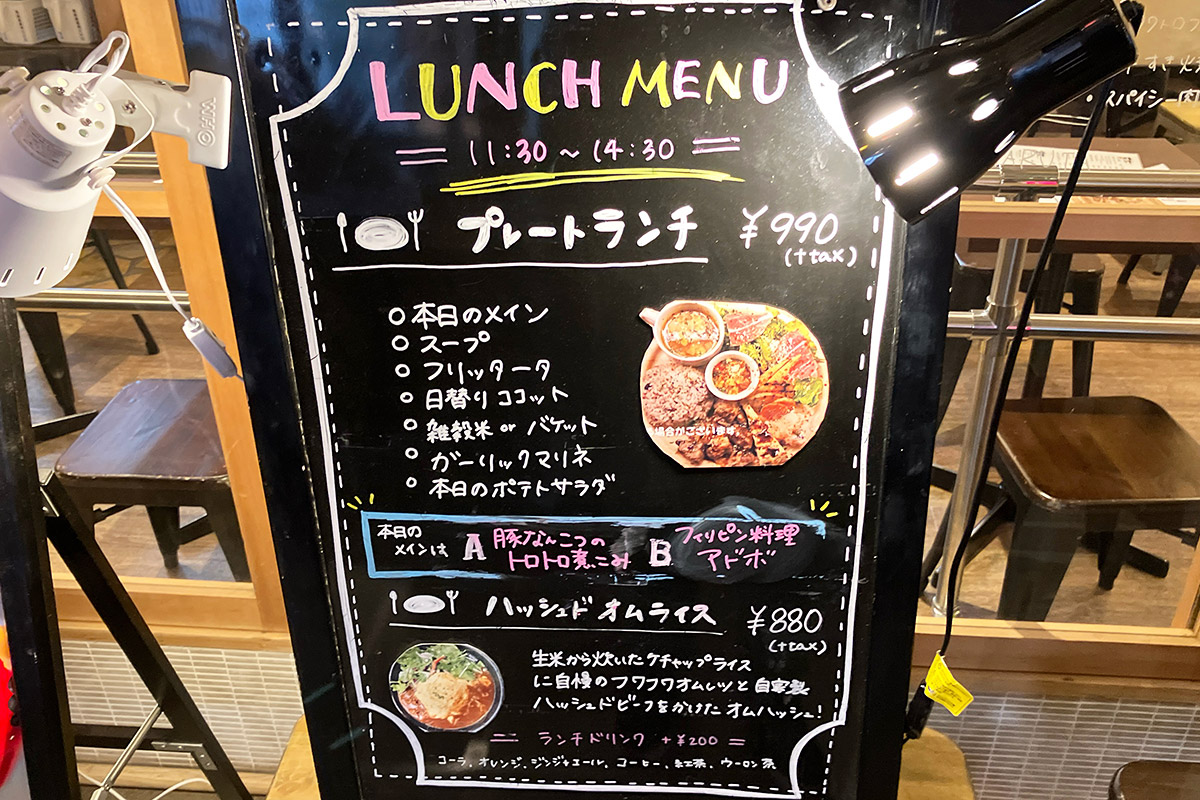 LUNCH MENU
11:30 ~ 14:30
プレートランチ ¥990
(+tax)
○ 本日のメイン
○ スープ
○ フリッタータ
○ 日替りココット
○ 雑穀米 or バゲット
○ ガーリックマリネ
○ 本日のポテトサラダ
場合がございます。
本日の
メインは
A 豚なんこつの
トロトロ煮こみ
B フィリピン料理
アドボ
ハッシュドオムライス ¥880
(+tax)
生米から炊いたケチャップライス
に自慢のフワフワオムレツと自家製
ハッシュドビーフをかけたオムハッシュ!
ランチドリンク +¥200
コーラ、オレンジ、ジンジャエール、コーヒー、紅茶、ウーロン茶
すき
・スパイシー肉